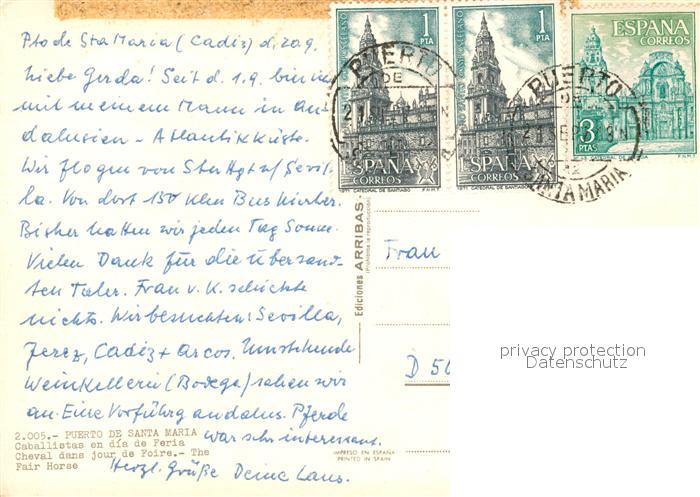 Pto de Sta Maria (Cadiz) d. 20.9.
Liebe Gerda! Seit d. 1.9. bin ich
mit meinem Mann in An-
dalusien - Atlantikküste.
Wir flogen von Sttgt n/ Sevil-
la. Von dort 150 Klm Bus hierher.
Bisher hatten wir jeden Tag Sonne.
Vielen Dank für die übersand-
ten Taler. Frau v. K. schickte
nichts. Wir besuchten: Sevilla,
Jerez, Cadiz + Arcos. Umstehende
Weinkellerei (Bodega) sahen wir
an. Eine Vorführg andalus. Pferde
war sehr interessant.
Herzl. Grüße Deine
2.005.- PUERTO DE SANTA MARIA
Caballistas en día de Feria
Cheval dans jour de Foire.- The
Fair Horse
Ediciones ARRIBAS.
(Prohibida la reproducción)
IMPRESO EN ESPAÑA
PRINTED IN SPAIN
1 PTA
ESPAÑA
CORREOS
1971 CATEDRAL DE SANTIAGO F.N.M.T.
1 PTA
ESPAÑA
CORREOS
1971 CATEDRAL DE SANTIAGO F.N.M.T.
ESPAÑA
CORREOS
3 PTAS
PUERTO
DE
PUERTO
DE
21 SEP
SANTA MARIA
Frau
D 50
privacy protection
Datenschutz